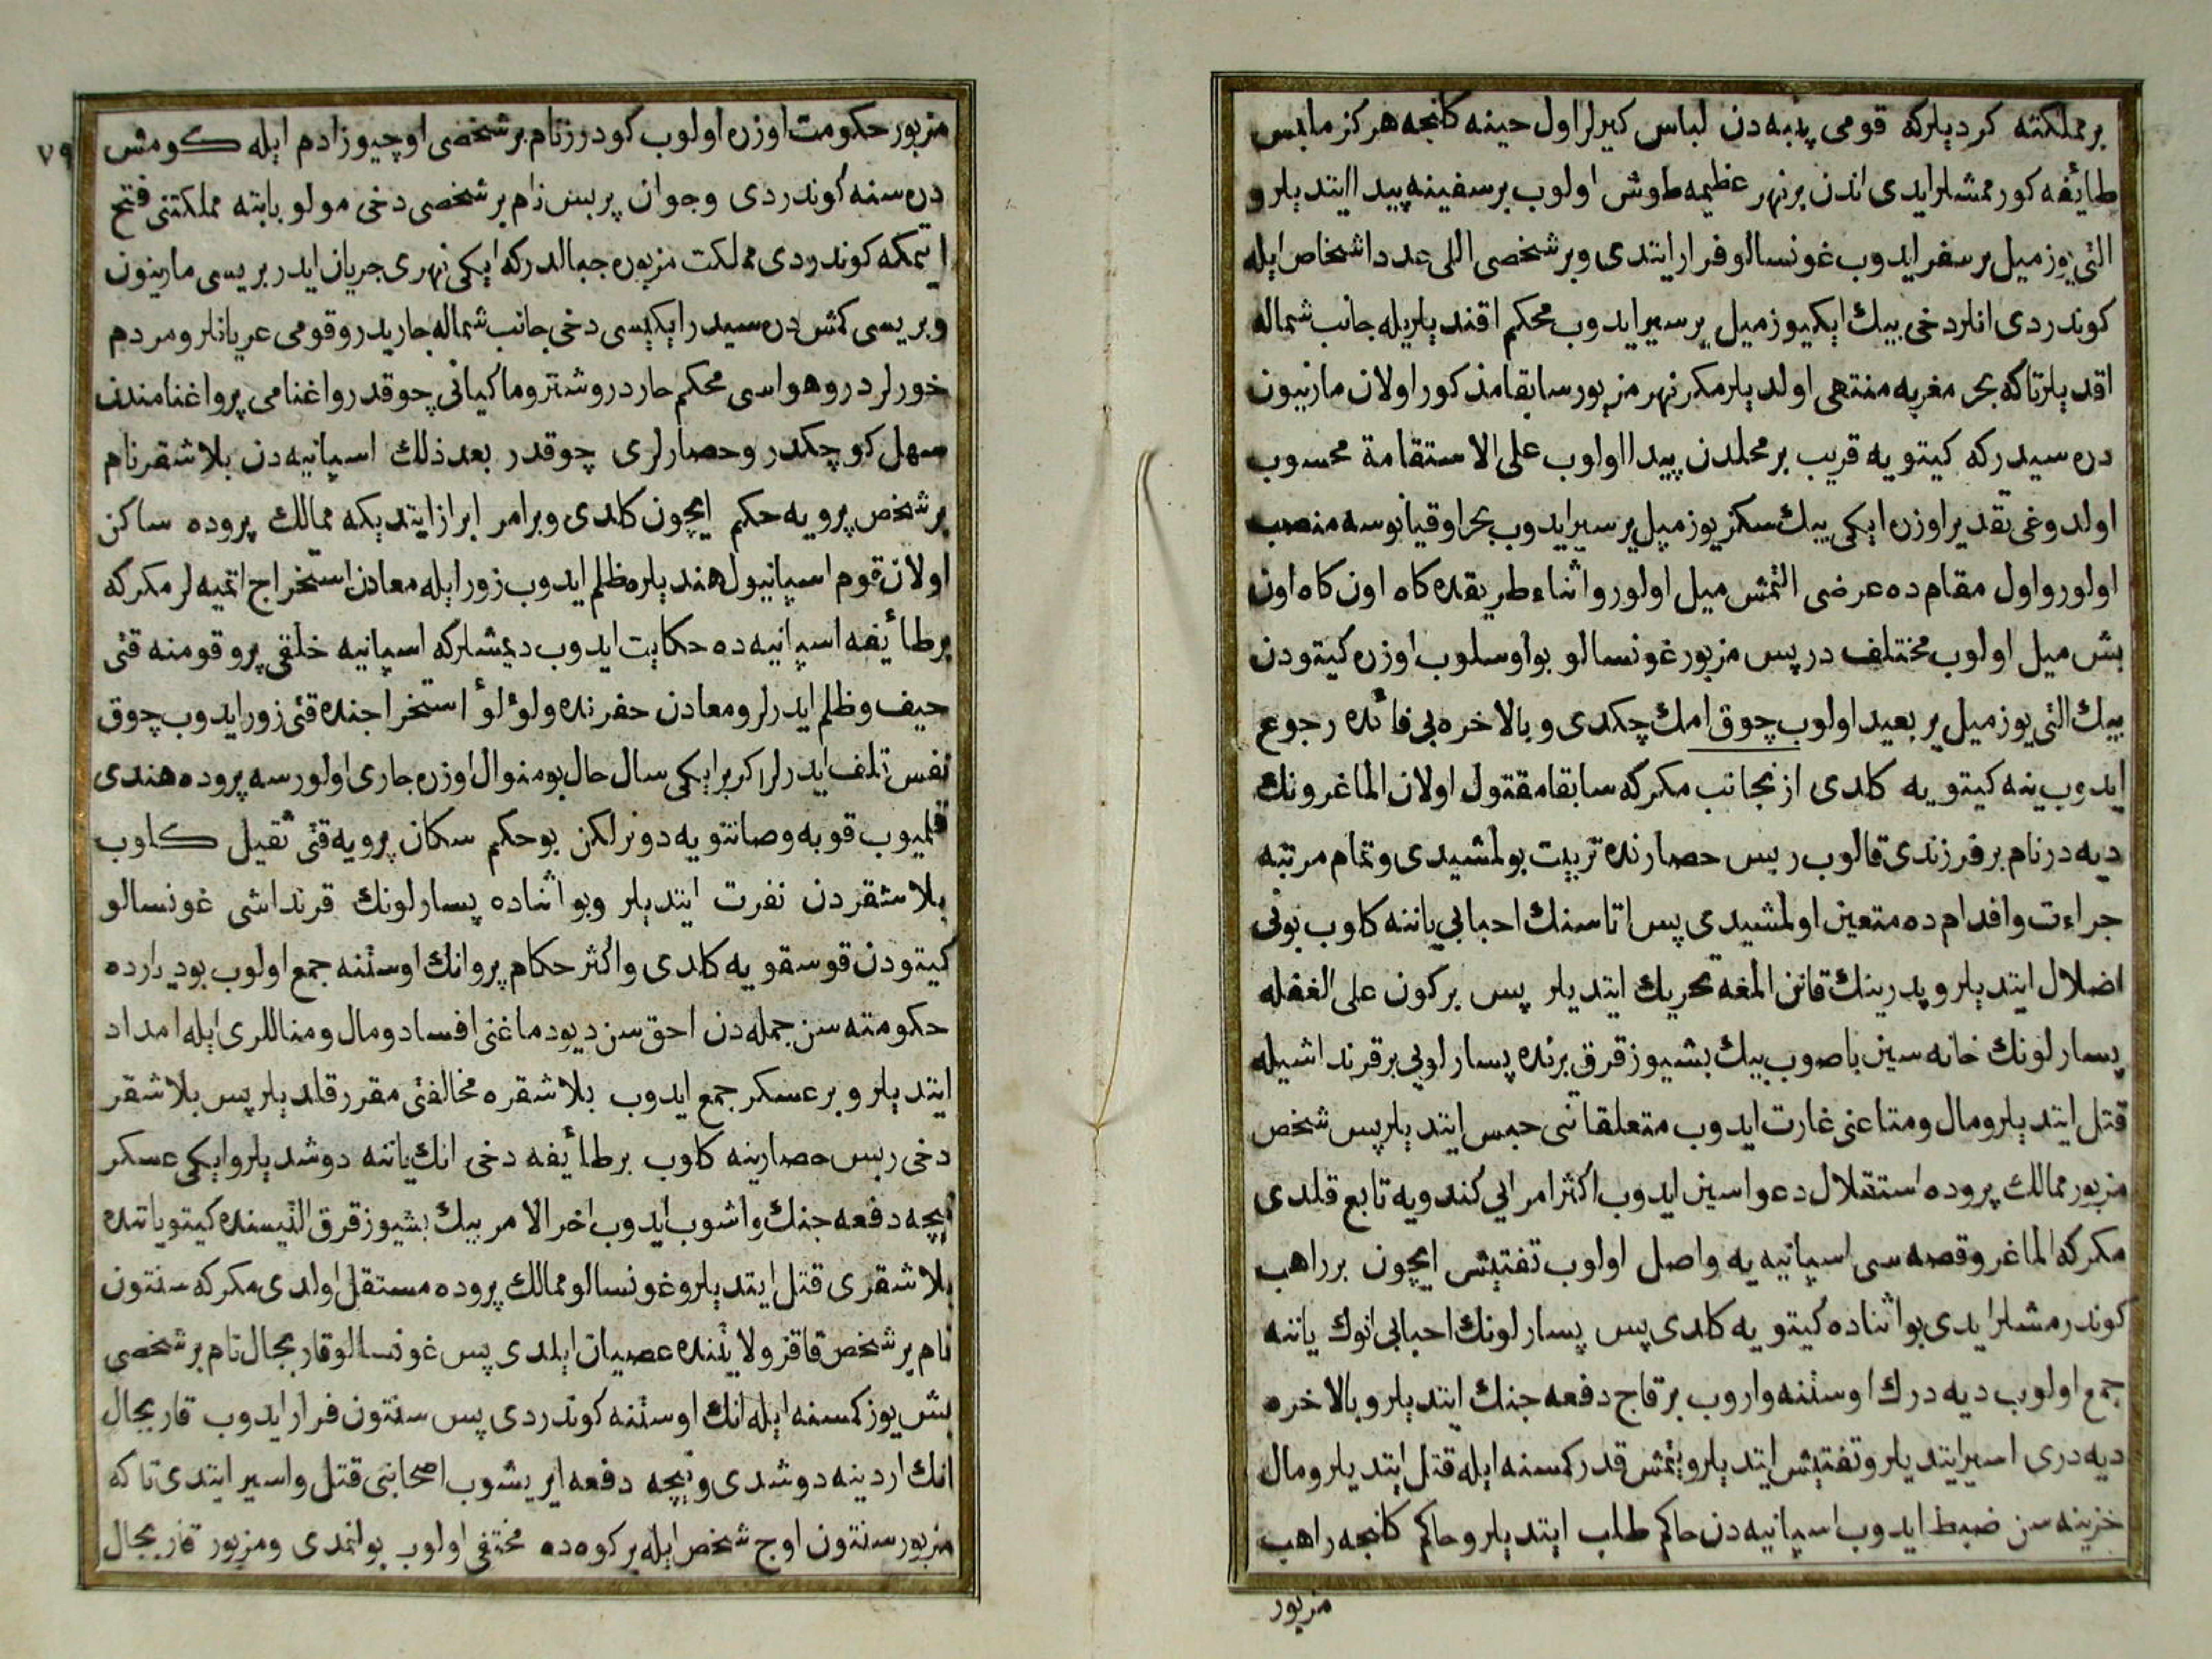 بر مملكته كرديلركه قومى پنبه دن لباس كيرلر اول حينه كلنجه هركز ملبس
طائفه كورممشلر ايدى اندن بر نهر عظيمه طوش اولوب بر سفينه پيدا ايتديلر و
التى يوز ميل بر سفر ايدوب غونسالو فرار ايتدى و بر شخصى اللى عدد اشخاص ايله
كوندردى انلر دخى بيك ايكيوز ميل ير سير ايدوب محكم اقنديلريله جانب شماله
اقديلر تا كه بحر مغربه منتهى اولديلر مكر نهر مزبور سابقا مذكور اولان مارنيون
دره سيدركه كيتويه قريب بر محلدن پيدا اولوب على الاستقامة محسوب
اولدوغى تقدير اوزره ايكى بيك سكز يوز ميل ير سير ايدوب بحر اوقيانوسه منصب
اولور و اول مقام ده عرضى التمش ميل اولور و اثناء طريقده كاه اون كاه اون
بش ميل اولوب مختلف در پس مزبور غونسالو بو اوسلوب اوزره كيتودن
بيك التى يوز ميل ير بعيد اولوب چوق امك چكدى و بالاخره بى فائده رجوع
ايدوب ينه كيتويه كلدى از بجانب مكركه سابقا مقتول اولان الماغرونك
ديه در نام بر فرزندى قالوب ريس حصارنده تربيت بولمشيدى و تمام مرتبه
جراءت و اقدام ده متعين اولمشيدى پس اتاسنك احبابى ياننه كلوب بونى
اضلال ايتديلر و پدرينك قانن المغه تحريك ايتديلر پس بر كون على الغفله
پسارلونك خانه سين باصوب بيك بشيوز قرق برنده پسارلويى بر قرنداشيله
قتل ايتديلر و مال و متاعنى غارت ايدوب متعلقاتنى حبس ايتديلر پس شخص
مزبور ممالك پروده استقلال دعواسين ايدوب اكثر امرايى كندويه تابع قلدى
مكركه الماغرو قصه سى اسپانيه يه واصل اولوب تفتيش ايچون بر راهب
كوندرمشلر ايدى بو اثناده كيتويه كلدى پس پسارلونك احبابى انوك ياننه
جمع اولوب ديه درك اوستنه واروب بر قاج دفعه جنك ايتديلر و بالاخره
ديه درى اسير ايتديلر و تفتيش ايتديلر و يتمش قدر كمسنه ايله قتل ايتديلر و مال
خزينه سن ضبط ايدوب اسپانيه دن حاكم طلب ايتديلر و حاكم كلنجه راهب
مزبور
٧٩
مزبور حكومت اوزره اولوب كودرز نام بر شخصى اوچيوز ادم ايله كومش
دره سنه كوندردى و جوان پريس نام بر شخصى دخى مولو بابته مملكتنى فتح
ايتمكه كوندردى مملكت مزبوره جبالدركه ايكى نهرى جريان ايدر بريسى مارنيون
و بريسى كمش دره سيدر ايكيسى دخى جانب شماله جاريدر و قومى عريانلر و مردم
خورلردر و هواسى محكم حاردر و شتر و ماكيانى چوقدر و اغنامى پرو اغنامندن
سهل كوچكدر و حصارلرى چوقدر بعد ذلك اسپانيه دن بلاشقر نام
بر شخص پرويه حكم ايچون كلدى و بر امر ابراز ايتديكه ممالك پروده ساكن
اولان قوم اسپانيول هنديلره ظلم ايدوب زور ايله معادن استخراج اتميه لر مكركه
بر طائفه اسپانيه ده حكايت ايدوب ديمشلركه اسپانيه خلقى پرو قومنه قتى
حيف و ظلم ايدرلر و معادن حفرنده و لؤلؤ استخراجنده قتى زور ايدوب چوق
نفس تلف ايدرلر اكر بر ايكى سال حال بو منوال اوزره جارى اولورسه پروده هندى
قلميوب قوبه و صانتويه دونر لكن بو حكم سكان پرويه قتى ثقيل كلوب
بلاشقردن نفرت ايتديلر و بو اثناده پسارلونك قرنداشى غونسالو
كيتودن قوسقويه كلدى و اكثر حكام پرو انك اوستنه جمع اولوب بو ديارده
حكومته سن جمله دن احق سن ديو دماغنى افساد و مال و مناللرى ايله امداد
ايتديلر و بر عسكر جمع ايدوب بلاشقره مخالفتى مقرر قلديلر پس بلاشقر
دخى ريس حصارينه كلوب بر طائفه دخى انك ياننه دوشديلر و ايكى عسكر
نيچه دفعه جنك و اشوب ايدوب اخر الامر بيك بشيوز قرق التيسنده كيتو ياننده
بلاشقرى قتل ايتديلر و غونسالو ممالك پروده مستقل اولدى مكركه سنتون
نام بر شخص قاقزولايتنده عصيان ايلدى پس غونسالو قاربجال نام بر شخصى
بش يوز كمسنه ايله انك اوستنه كوندردى پس سنتون فرار ايدوب قاربجال
انك اردينه دوشدى و نيچه دفعه ايريشوب اصحابنى قتل و اسير ايتدى تا كه
مزبور سنتون اوج شخص ايله بر كوه ده مختفى اولوب بولنمدى و مزبور قاربجال